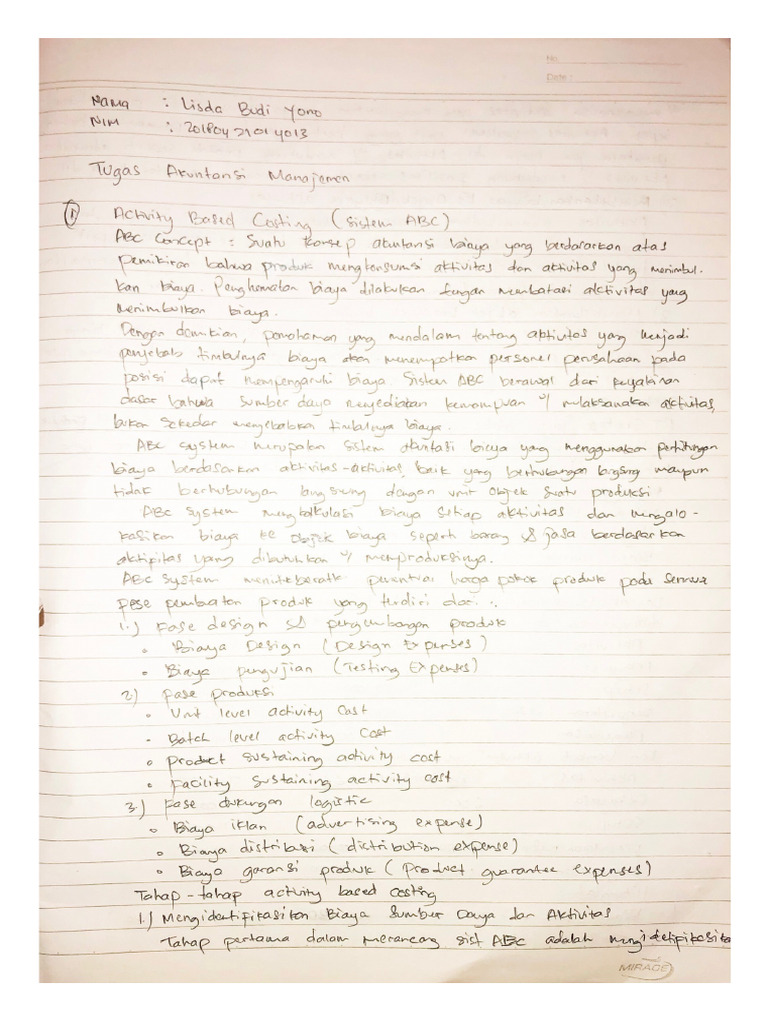 No.
Date :
Nama : Lisda Budi Yono
NIM : 20180421014013
Tugas Akuntansi Manajemen
① Activity Based Costing (Sistem ABC)
ABC Concept : Suatu konsep akuntansi biaya yang berdasarkan atas
pemikiran bahwa produk mengkonsumsi aktivitas dan aktivitas yang menimbul-
kan biaya. Penghematan biaya dilakukan dengan membatasi aktivitas yang
menimbulkan biaya.
Dengan demikian, pemahaman yang mendalam tentang aktivitas yang menjadi
penyebab timbulnya biaya akan menempatkan personel perusahaan pada
posisi dapat mempengaruhi biaya. Sistem ABC berawal dari keyakinan
dasar bahwa sumber daya menyediakan kemampuan u/ melaksanakan aktivitas,
bukan sekedar menyebabkan timbulnya biaya.
ABC system merupakan sistem akuntasi biaya yang menggunakan perhitungan
biaya berdasarkan aktivitas-aktivitas, baik yang berhubungan langsung maupun
tidak berhubungan langsung dengan unit objek suatu produksi
ABC system mengkalkulasi biaya setiap aktivitas dan mengalo-
kasikan biaya ke objek biaya seperti barang & jasa berdasarkan
aktifitas yang dibutuhkan u/ memproduksinya.
ABC system menitekberatk penentuan harga pokok produk pada semua
fese pembuatan produk yang terdiri dari :
1.) Fase design & pengembangan produk
• Biaya Design (Design Expenses)
• Biaya pengujian (Testing Expenses)
2) Fase produksi
• Unit level activity cost
• Batch level activity cost
• Product sustaining activity cost
• Facility sustaining activity cost
3.) Fase dukungan logistic
• Biaya iklan (advertising expense)
• Biaya distribusi (distribution expense)
• Biaya garansi produk (Product guarantee expenses)
Tahap-tahap activity based costing
1.) Mengidentifikasikan Biaya Sumber Daya dan Aktivitas
Tahap pertama dalam merancang sist ABC adalah
MIRAGE